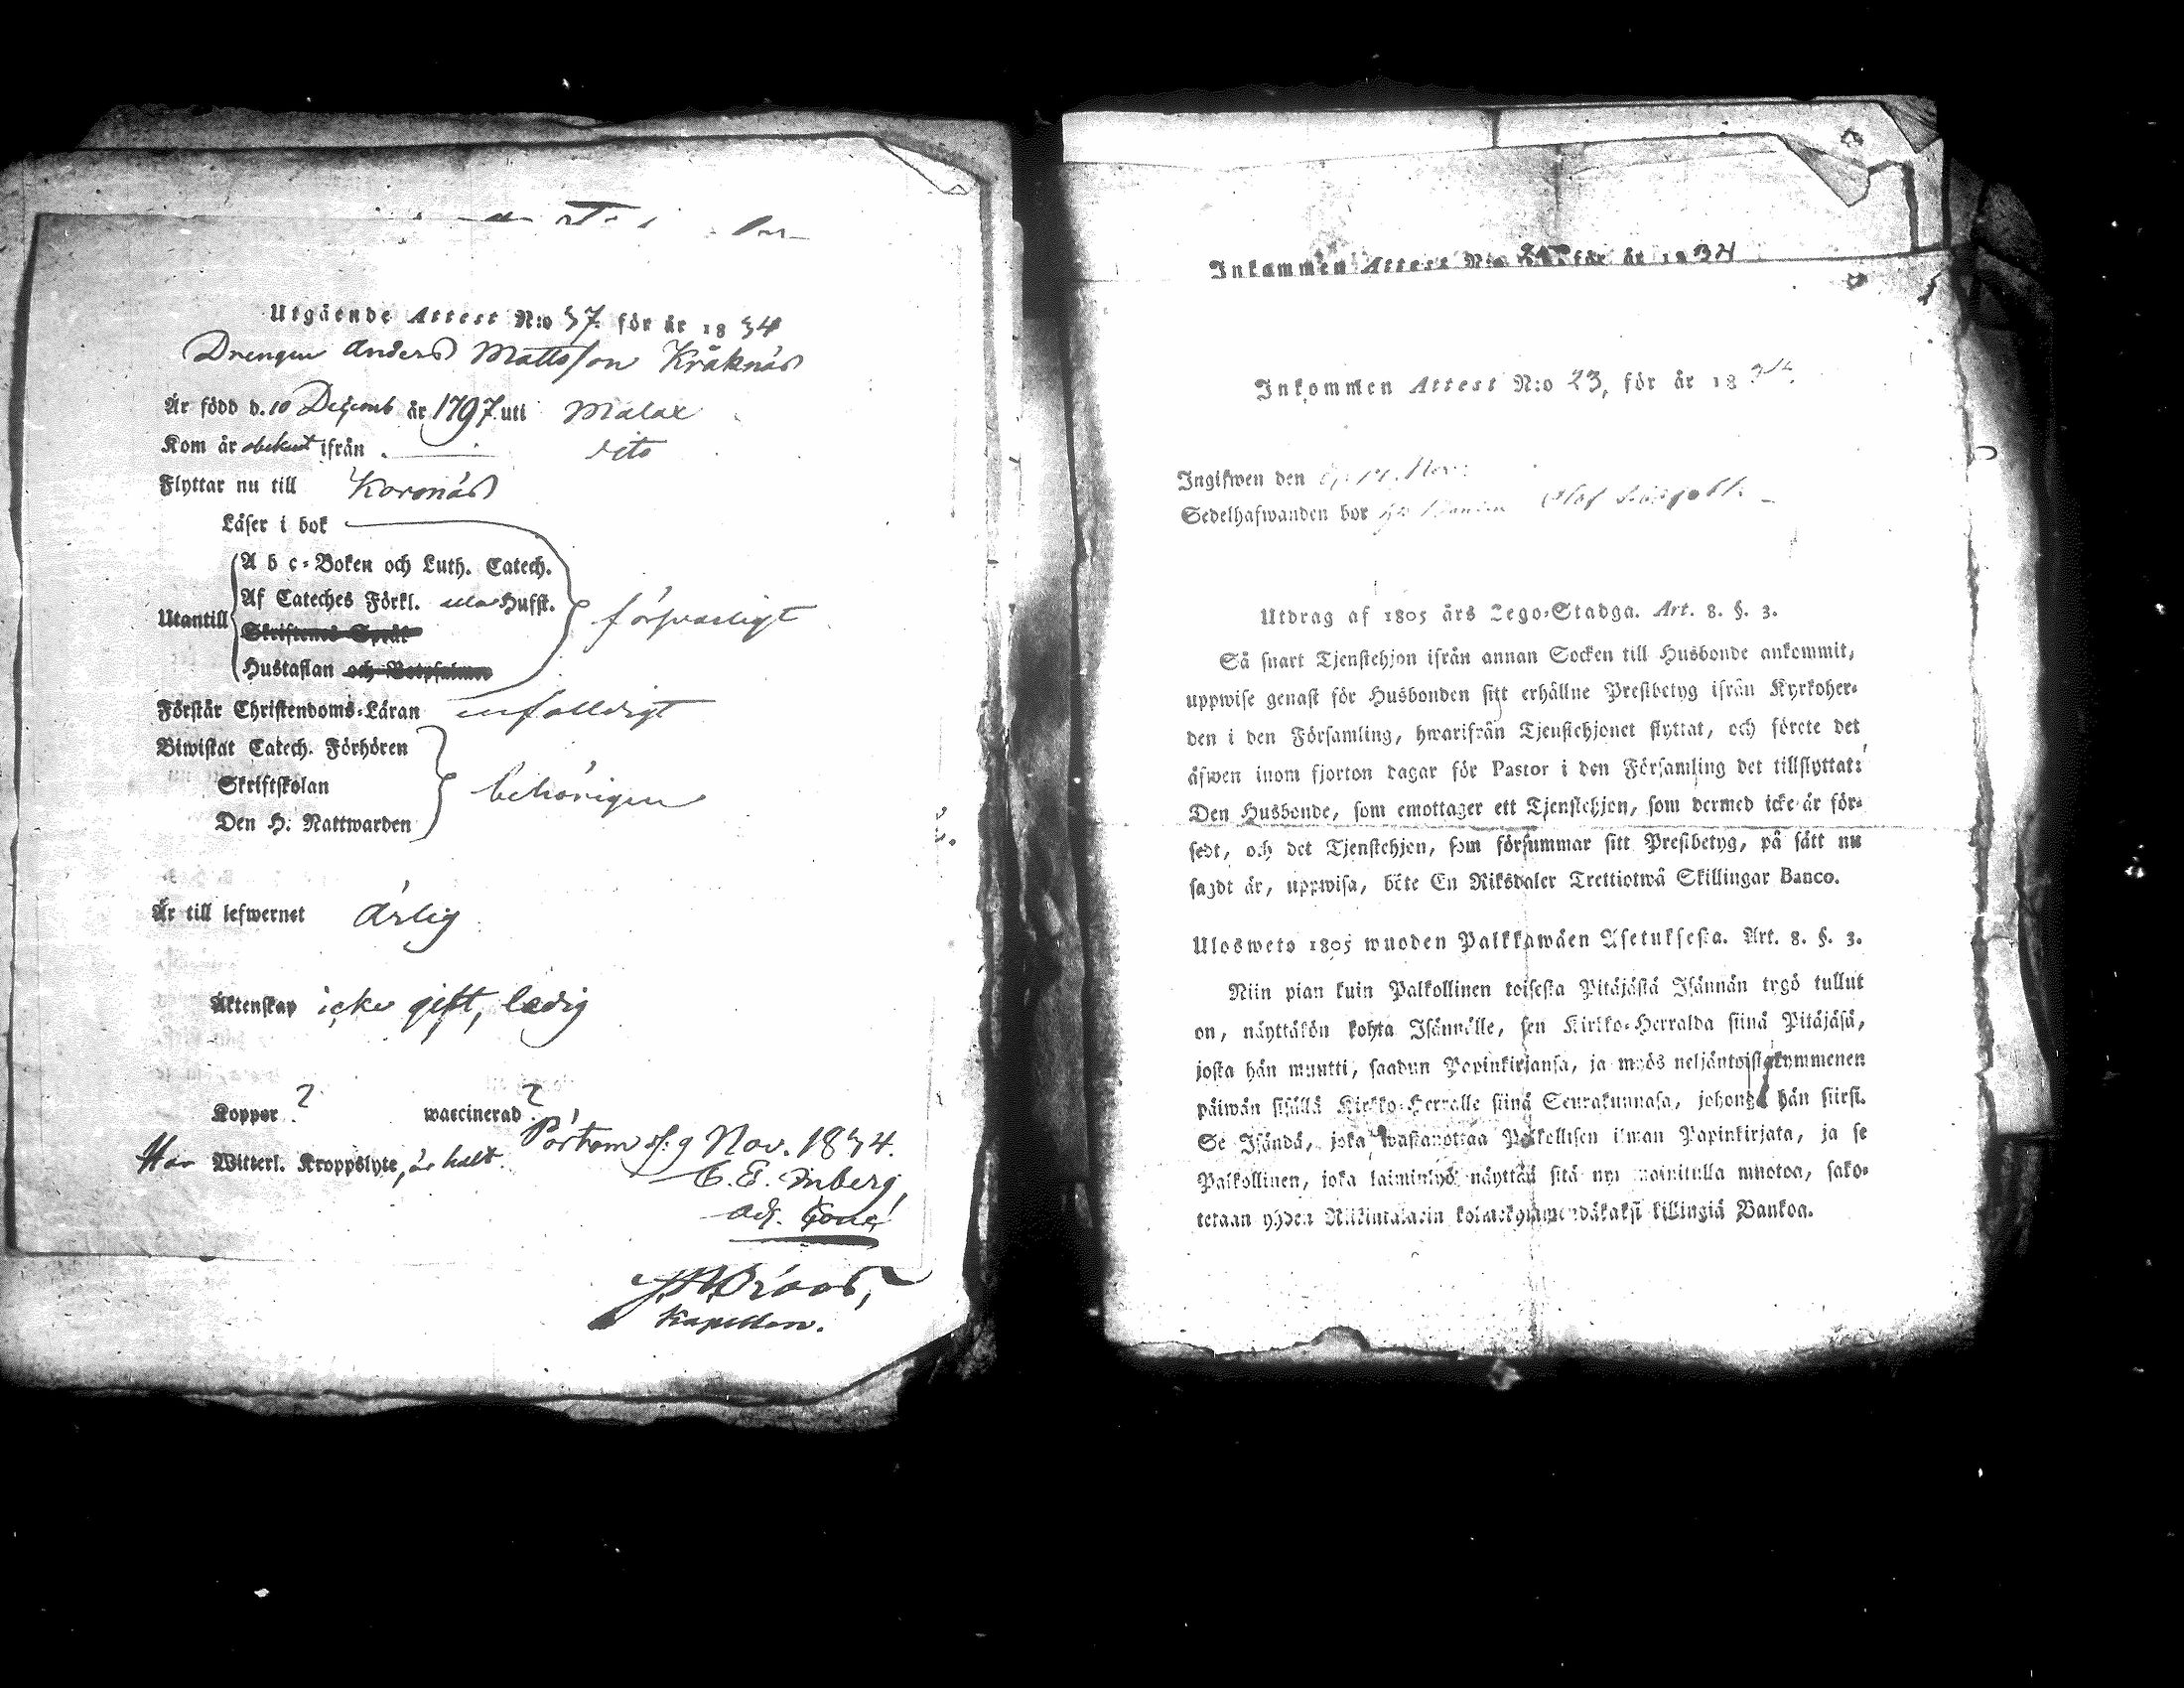 Utgående Attest N:o 37. för år 1834
Drengen Anders Mattsson Kråknäs
Är född d. 10 Decemb år 1797. uti Malax
Kom år obekant ifrån dito
Flyttar nu till Korsnäs
Läser i bok
Utantill
A b c-Boken och Luth. Catech.
Af Cateches Förkl. Husst.
Skriftenes Språk
Hustaflan och Botpsalmer
försvarligt
Förstår Christendoms-Läran enfalldigt
Biwistat Catech. Förhören
Skriftskolan
Den H. Nattwarden
behörigen
Är till lefwernet ärlig
Äktenskap icke gift, ledig
Koppor ? waccinerad ?
Har Witterl. Kroppslyte, är halt.
Pörtom d. 9 Nov. 1834.
C. E. Inberg,
adj.
Kapellan.
Inkommen Attest N:o för år 1834
Inkommen Attest N:o 23, för år 1834.
Ingifwen den Nov:
Sedelhafwanden bor Olof
Utdrag af 1805 års Lego-Stadga. Art. 8. §. 3.
Så snart Tjenstehjon ifrån annan Socken till Husbonde ankommit,
uppwise genast för Husbonden sitt erhållne Prestbetyg ifrån Kyrkoher-
den i den Församling, hwarifrån Tjenstehjonet flyttat, och förete det
äfwen inom fjorton dagar för Pastor i den Församling det tillflyttat:
Den Husbonde, som emottager ett Tjenstehjon, som dermed icke är för-
sedt, och det Tjenstehjon, som försummar sitt Prestbetyg, på sätt nu
sagdt är, uppwisa, böte En Riksdaler Trettiotwå Skillingar Banco.
Ulosweto 1805 wuoden Palkkawäen Asetuksesta. Art. 8. §. 3.
Niin pian kuin Palkollinen toisesta Pitäjästä Isännän tygö tullut
on, näyttäkön kohta Isännälle, sen Kirkko-Herralda siinä Pitäjäsä,
josta hän muutti, saadun Papinkirjansa, ja myös neljäntoistakymmenen
päiwän sisällä Kirkko-Herralle siinä Seurakunnasa, johonga hän siirsi.
Se Isändä, joka wastanottaa Palkollisen ilman Papinkirjata, ja se
Palkollinen, joka laiminlyö näyttää sitä nyt mainitulla muotoa, sako-
tetaan yhden Riikintalarin kolmekymmendäkaksi killingiä Bankoa.